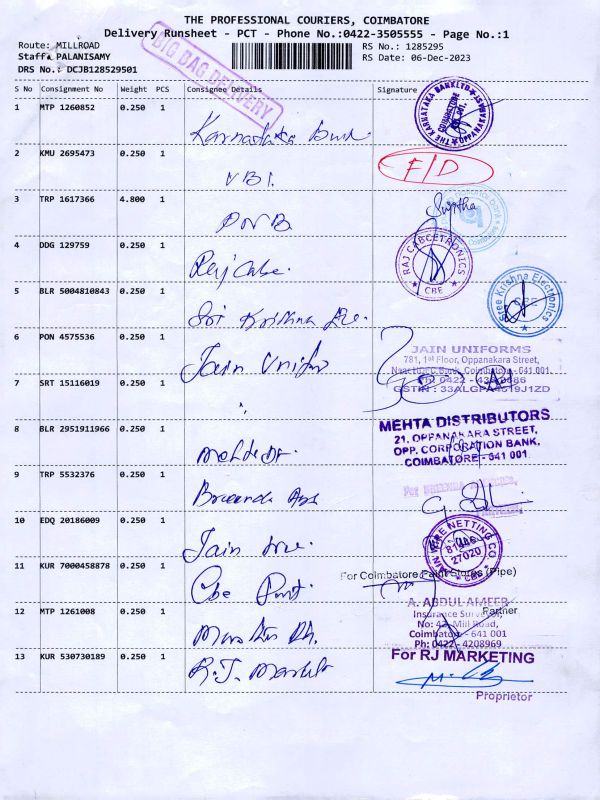 THE PROFESSIONAL COURIERS, COIMBATORE
Delivery Runsheet - PCT - Phone No.:0422-3505555 - Page No.:1
Route: MILLROAD
RS No.: 1285295
Staff: PALANISAMY
RS Date: 06-Dec-2023
DRS No.: DCJB128529501
BIG BAG DELIVERY
S No Consignment No Weight PCS Consignee Details Signature
1 MTP 1260852 0.250 1
Karnataka Bank
THE KARNATAKA BANK LTD
COIMBATORE
2 KMU 2695473 0.250 1
UBI.
F/D
3 TRP 1617366 4.800 1
PNB
Sujitha
4 DDG 129759 0.250 1
Raj Cabe.
RAJ CABCETRONICS
CBE
5 BLR 5004810843 0.250 1
Sri Krishna Ele.
Sree Krishna Electronics
CBE
6 PON 4575536 0.250 1
Jain Unifor
JAIN UNIFORMS
781, 1st Floor, Oppanakara Street,
Near HDFC Bank, Coimbatore - 641 001.
7 SRT 15116019 0.250 1
"
8 BLR 2951911966 0.250 1
Mehta Dr.
MEHTA DISTRIBUTORS
21, OPPANAKARA STREET,
OPP. CORPORATION BANK,
COIMBATORE - 641 001
9 TRP 5532376 0.250 1
10 EDQ 20186009 0.250 1
Jain
JAIN WIRE NETTING CO
CBE
11 KUR 7000458878 0.250 1
Cbe Paint.
For Coimbatore Paint Stores (Pipe)
Partner
12 MTP 1261008 0.250 1
A. ABDUL AMEER
Insurance Surveyor,
No: 42, Mill Road,
Coimbatore - 641 001
Ph: 0422 - 4208969
13 KUR 530730189 0.250 1
R.J. Market
For RJ MARKETING
Proprietor